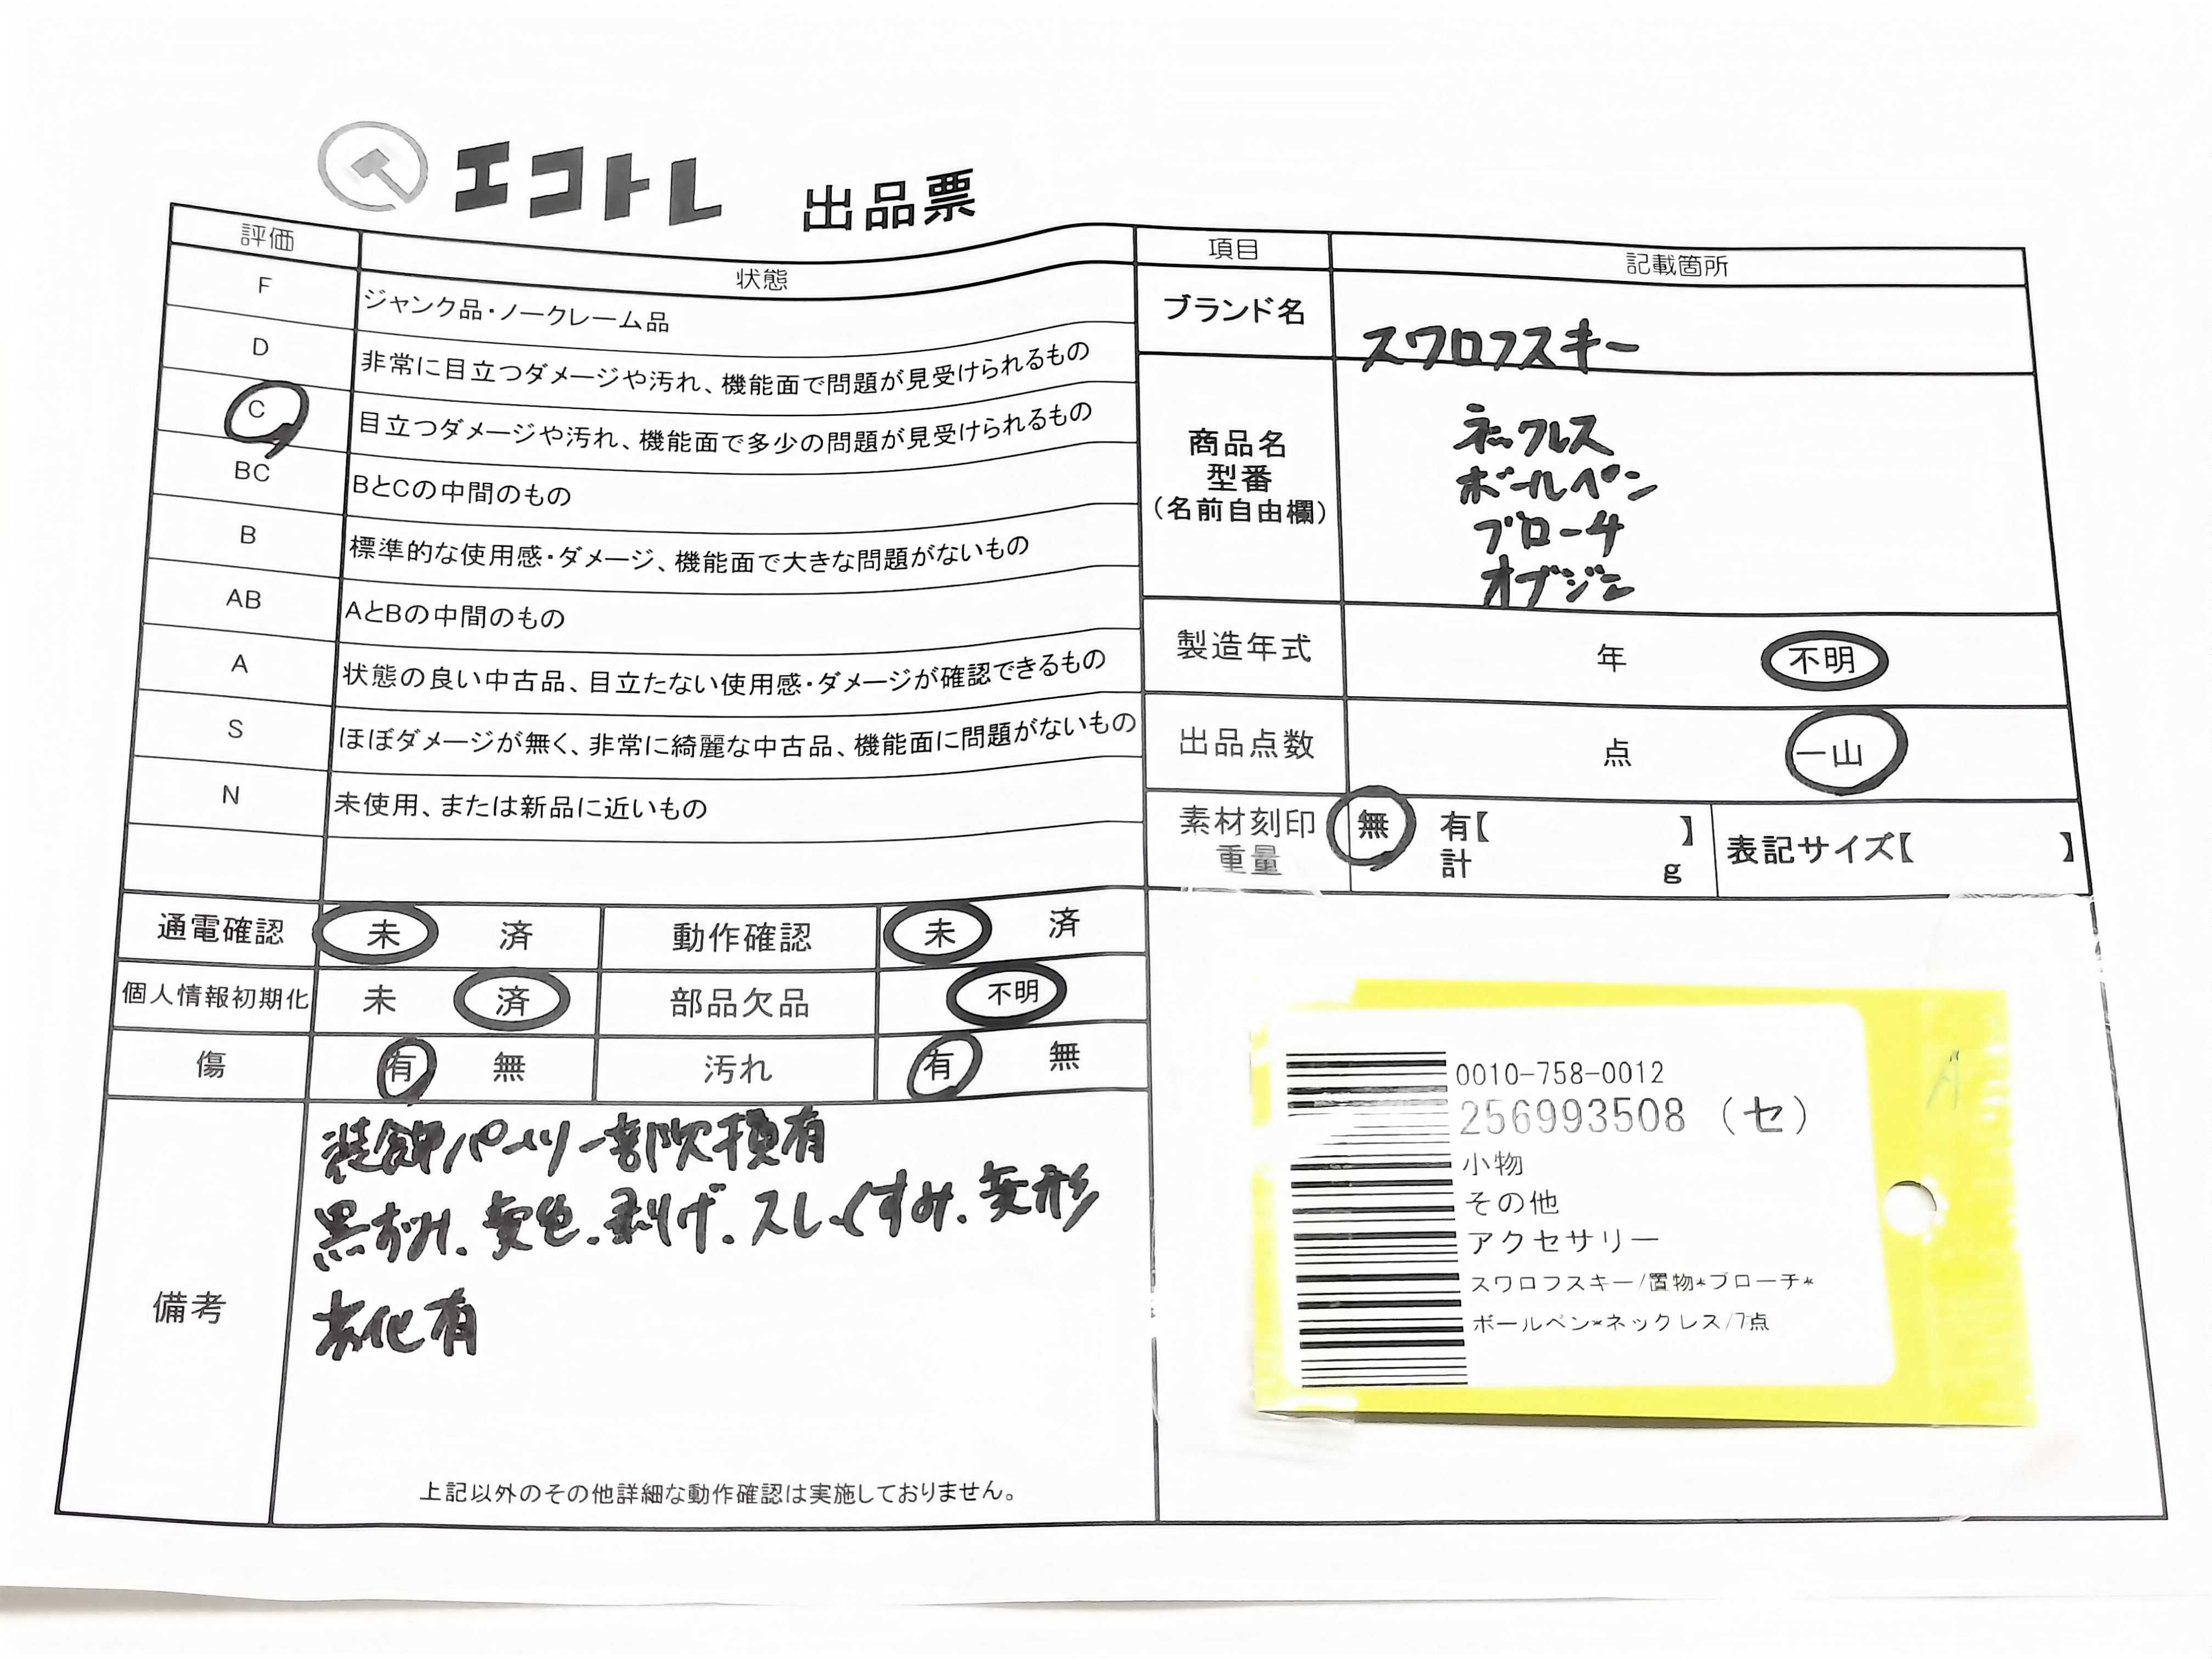 エコトレ 出品票
評価 状態
F ジャンク品・ノークレーム品
D 非常に目立つダメージや汚れ、機能面で問題が見受けられるもの
C 目立つダメージや汚れ、機能面で多少の問題が見受けられるもの
BC BとCの中間のもの
B 標準的な使用感・ダメージ、機能面で大きな問題がないもの
AB AとBの中間のもの
A 状態の良い中古品、目立たない使用感・ダメージが確認できるもの
S ほぼダメージが無く、非常に綺麗な中古品、機能面に問題がないもの
N 未使用、または新品に近いもの
通電確認 未 済 動作確認 未 済
個人情報初期化 未 済 部品欠品 不明
傷 有 無 汚れ 有 無
備考
装飾パーツ一部欠損有
黒ずみ、変色、剥げ、スレ、くすみ、変形
劣化有
上記以外のその他詳細な動作確認は実施しておりません。
項目 記載箇所
ブランド名 スワロフスキー
商品名
型番
(名前自由欄)
ネックレス
ボールペン
ブローチ
オブジェ
製造年式 年 不明
出品点数 点 一山
素材刻印 無 有【 】
重量 計 g
表記サイズ【 】
0010-758-0012
256993508 (セ)
小物
その他
アクセサリー
スワロフスキー/置物*ブローチ*
ボールペン*ネックレス/7点